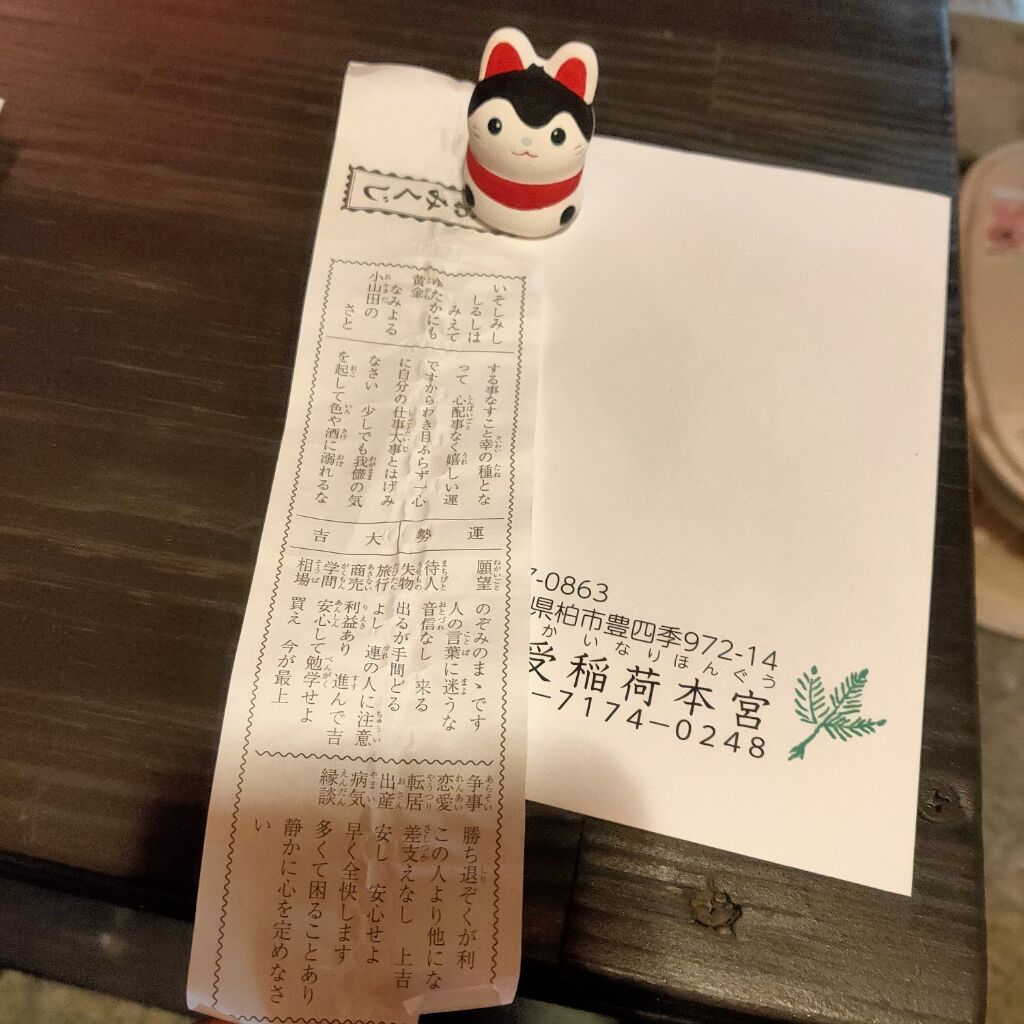 いそしみし
しるしは
みえて
ゆたかにも
黄金
なみよる
小山田の
さと
する事なすこと幸の種とな
って 心配事なく嬉しい運
ですからわき目ふらず一心
に自分の仕事大事とはげみ
なさい 少しでも我儘の気
を起して色や酒に溺れるな
運勢 大吉
願望 のぞみのまゝです
人の言葉に迷うな
待人 音信なし 来る
失物 出るが手間どる
旅行 よし 連の人に注意
商売 利益あり 進んで吉
学問 安心して勉学せよ
相場 買え 今が最上
争事 勝ち退ぞくが利
恋愛 この人より他にな
転居 差支えなし 上吉
出産 安し 安心せよ
病気 早く全快します
縁談 多くて困ることあり
静かに心を定めなさ
い
7-0863
県柏市豊四季972-14
かいなりほんぐう
受稲荷本宮
ー7174ー0248